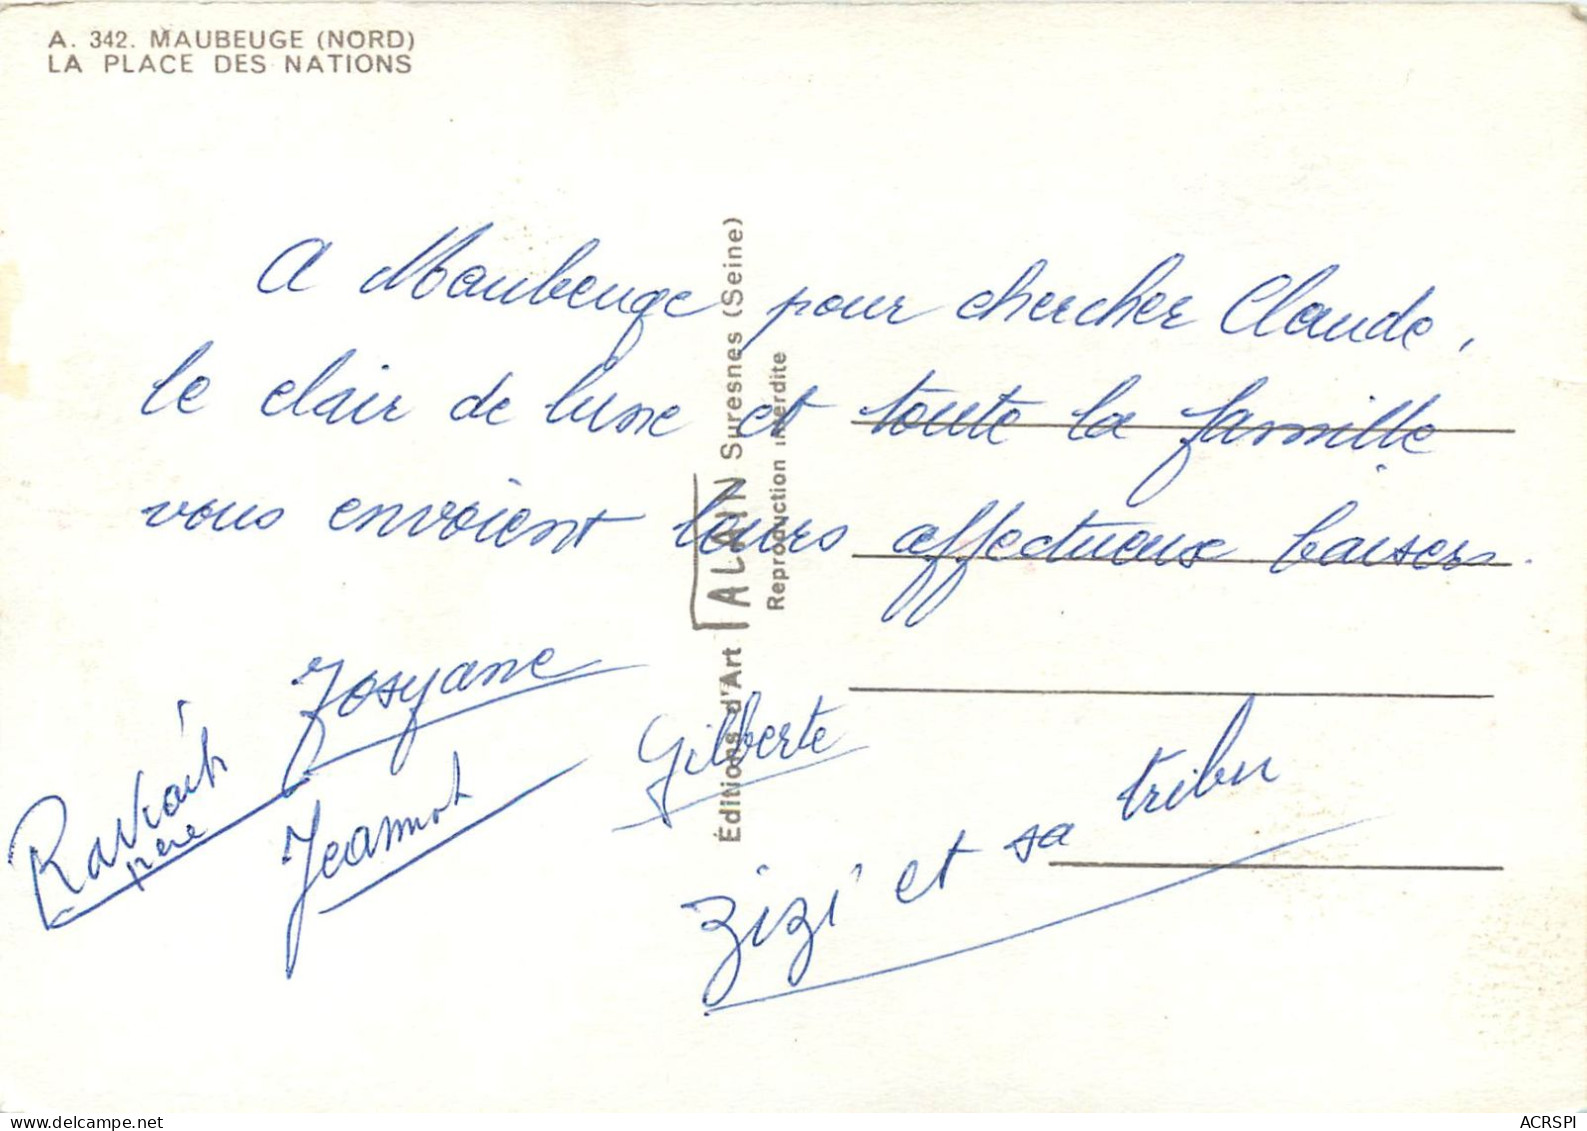 A. 342. MAUBEUGE (NORD)
LA PLACE DES NATIONS
A Maubeuge pour chercher Claude,
le clair de lune et toute la famille
vous envoient leurs affectueux baisers.
Josyane
père
Jeannot
Gilberte
Zizi et sa tribu
Éditions d'Art ALAIN Suresnes (Seine)
Reproduction interdite
delcampe.net
ACRSPI